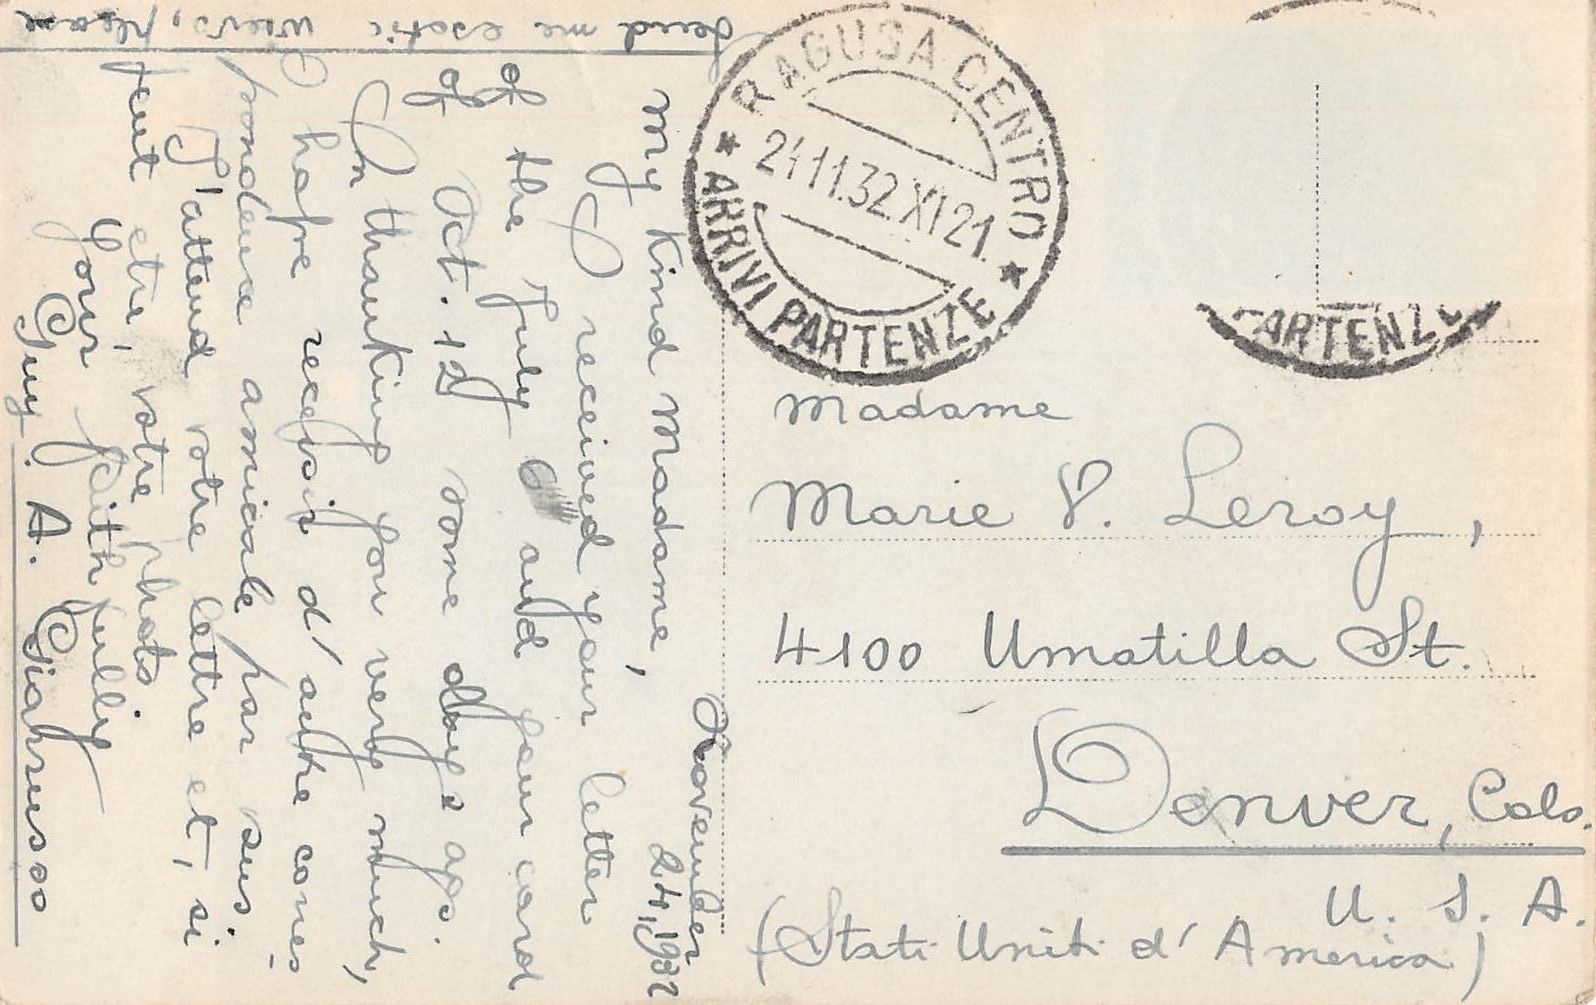 Send me esotic wievs, please
November
24, 1932
My kind Madame,
I received your letter
of the July 6 and your card
of Oct. 12 some days ago.
In thanking you very much,
I hafre recefoir d'autre corres-
pondence amicale par sus.
J'attend votre lettre et, si
peut etre, votre photo
Your faithfully
Guy. A. Giahrusso
RAGUSA CENTRO
24.11.32.XI 21
ARRIVI PARTENZE
PARTENZE
Madame
Marie V. Leroy,
4100 Umatilla St.
Denver, Colo.
U. S. A.
(Stati Uniti d'America)